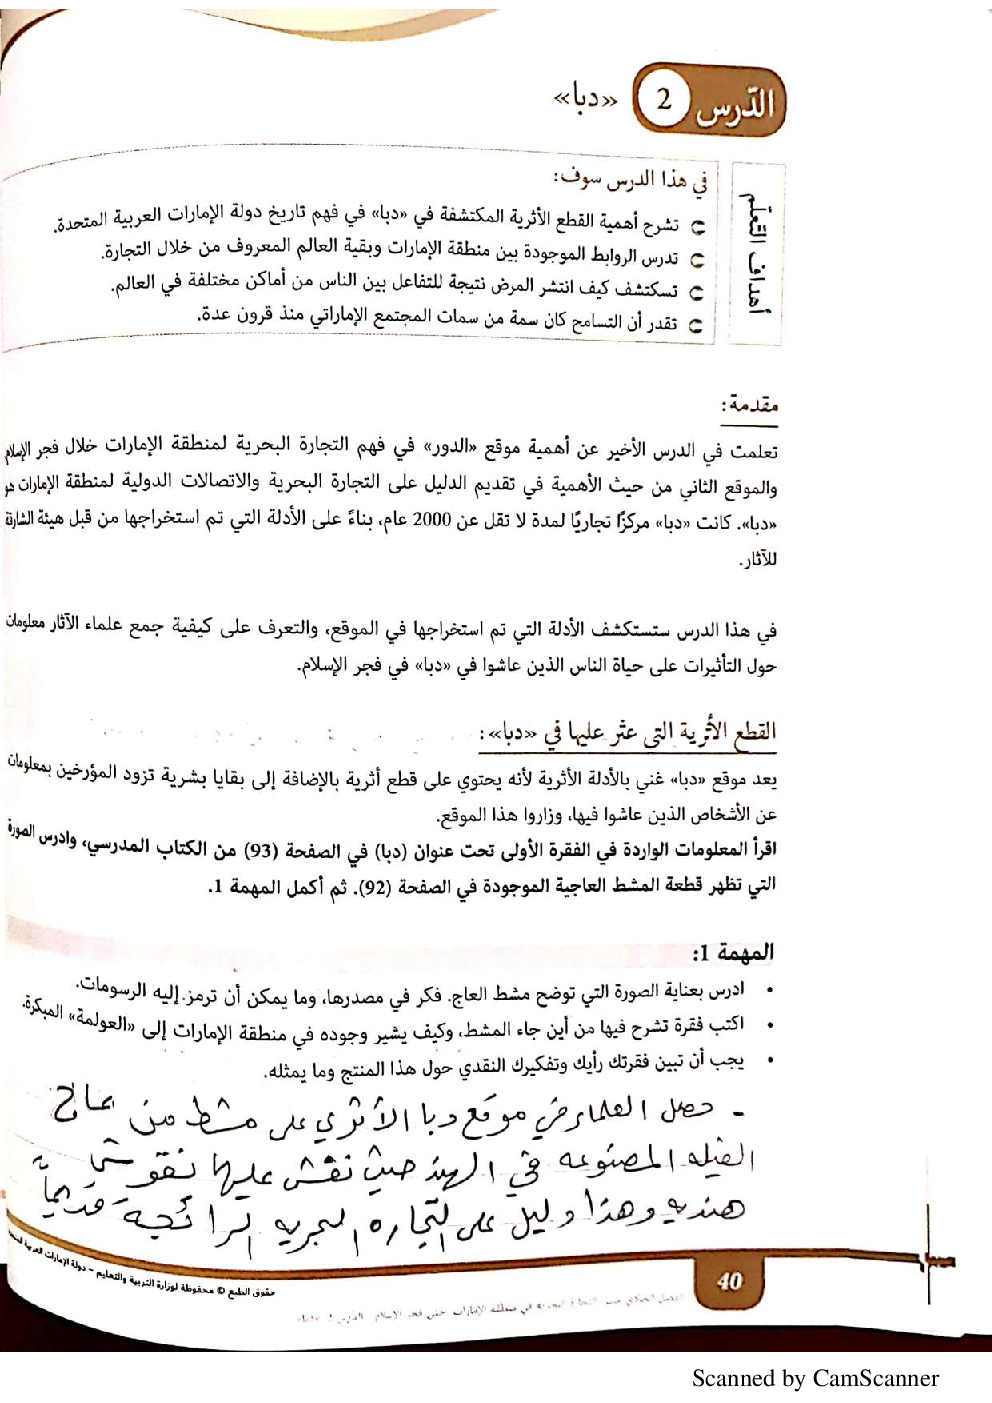 الدّرس 2 «دبا»
أهداف التعلّم
في هذا الدرس سوف:
تشرح أهمية القطع الأثرية المكتشفة في «دبا» في فهم تاريخ دولة الإمارات العربية المتحدة.
تدرس الروابط الموجودة بين منطقة الإمارات وبقية العالم المعروف من خلال التجارة.
تستكشف كيف انتشر المرض نتيجة للتفاعل بين الناس من أماكن مختلفة في العالم.
تقدر أن التسامح كان سمة من سمات المجتمع الإماراتي منذ قرون عدة.
مقدمة:
تعلمت في الدرس الأخير عن أهمية موقع «الدور» في فهم التجارة البحرية لمنطقة الإمارات خلال فجر الإسلام
والموقع الثاني من حيث الأهمية في تقديم الدليل على التجارة البحرية والاتصالات الدولية لمنطقة الإمارات هو
«دبا». كانت «دبا» مركزًا تجاريًا لمدة لا تقل عن 2000 عام، بناءً على الأدلة التي تم استخراجها من قبل هيئة الشارقة
للآثار.
في هذا الدرس ستستكشف الأدلة التي تم استخراجها في الموقع، والتعرف على كيفية جمع علماء الآثار معلومات
حول التأثيرات على حياة الناس الذين عاشوا في «دبا» في فجر الإسلام.
القطع الأثرية التي عثر عليها في «دبا»:
يعد موقع «دبا» غني بالأدلة الأثرية لأنه يحتوي على قطع أثرية بالإضافة إلى بقايا بشرية تزود المؤرخين بمعلومات
عن الأشخاص الذين عاشوا فيها، وزاروا هذا الموقع.
اقرأ المعلومات الواردة في الفقرة الأولى تحت عنوان (دبا) في الصفحة (93) من الكتاب المدرسي، وادرس الصورة
التي تظهر قطعة المشط العاجية الموجودة في الصفحة (92). ثم أكمل المهمة 1.
المهمة 1:
• ادرس بعناية الصورة التي توضح مشط العاج. فكر في مصدرها، وما يمكن أن ترمز إليه الرسومات.
• اكتب فقرة تشرح فيها من أين جاء المشط، وكيف يشير وجوده في منطقة الإمارات إلى «العولمة» المبكرة.
• يجب أن تبين فقرتك رأيك وتفكيرك النقدي حول هذا المنتج وما يمثله.
- حصل العلماء في موقع دبا الأثري على مشط من عاج
الفيله المصنوعه في الهند حيث نقش عليها نقوش
هنديه وهذا دليل على التجاره البحريه الرائجة قديماً
حقوق الطبع © محفوظة لوزارة التربية والتعليم – دولة الإمارات العربية
40
Scanned by CamScanner